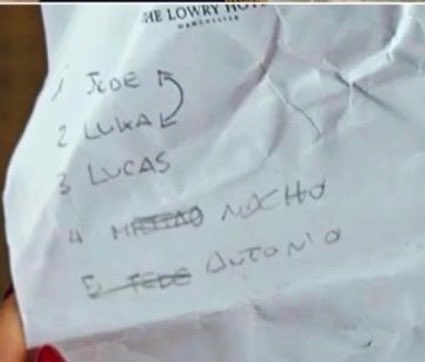 HE LOWRY HO
MANCHESTER
1 JUDE
2 LUKA
3 LUCAS
4 NACHO
5 FEDE ANTONIO